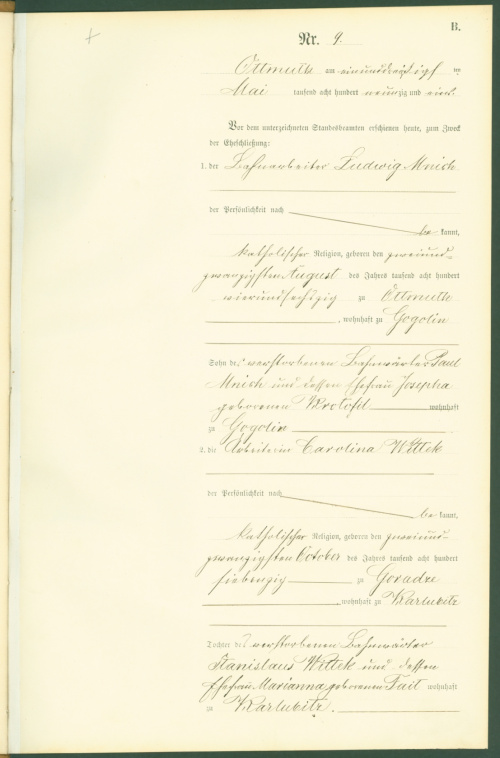 B.
Nr. 9.
Ottmuth am einunddreißigsten
Mai tausend acht hundert neunzig und eins
Vor dem unterzeichneten Standesbeamten erschienen heute, zum Zweck
der Eheschließung:
1. der Bahnarbeiter Ludwig Mnich
der Persönlichkeit nach
be kannt,
katholischer Religion, geboren den zweiund-
zwanzigsten August des Jahres tausend acht hundert
vierundsechszig zu Ottmuth
, wohnhaft zu Gogolin
Sohn des verstorbenen Bahnwärter Paul
Mnich und dessen Ehefrau Josepha
geborenen Krotofil wohnhaft
zu Gogolin
2. die Arbeiterin Carolina Wittek
der Persönlichkeit nach
be kannt,
katholischer Religion, geboren den zweiund-
zwanzigsten October des Jahres tausend acht hundert
siebenzig zu Goradze
, wohnhaft zu Karlubitz
Tochter des verstorbenen Bahnwärter
Stanislaus Wittek und dessen
Ehefrau Marianna geborenen Fait wohnhaft
zu Karlubitz.